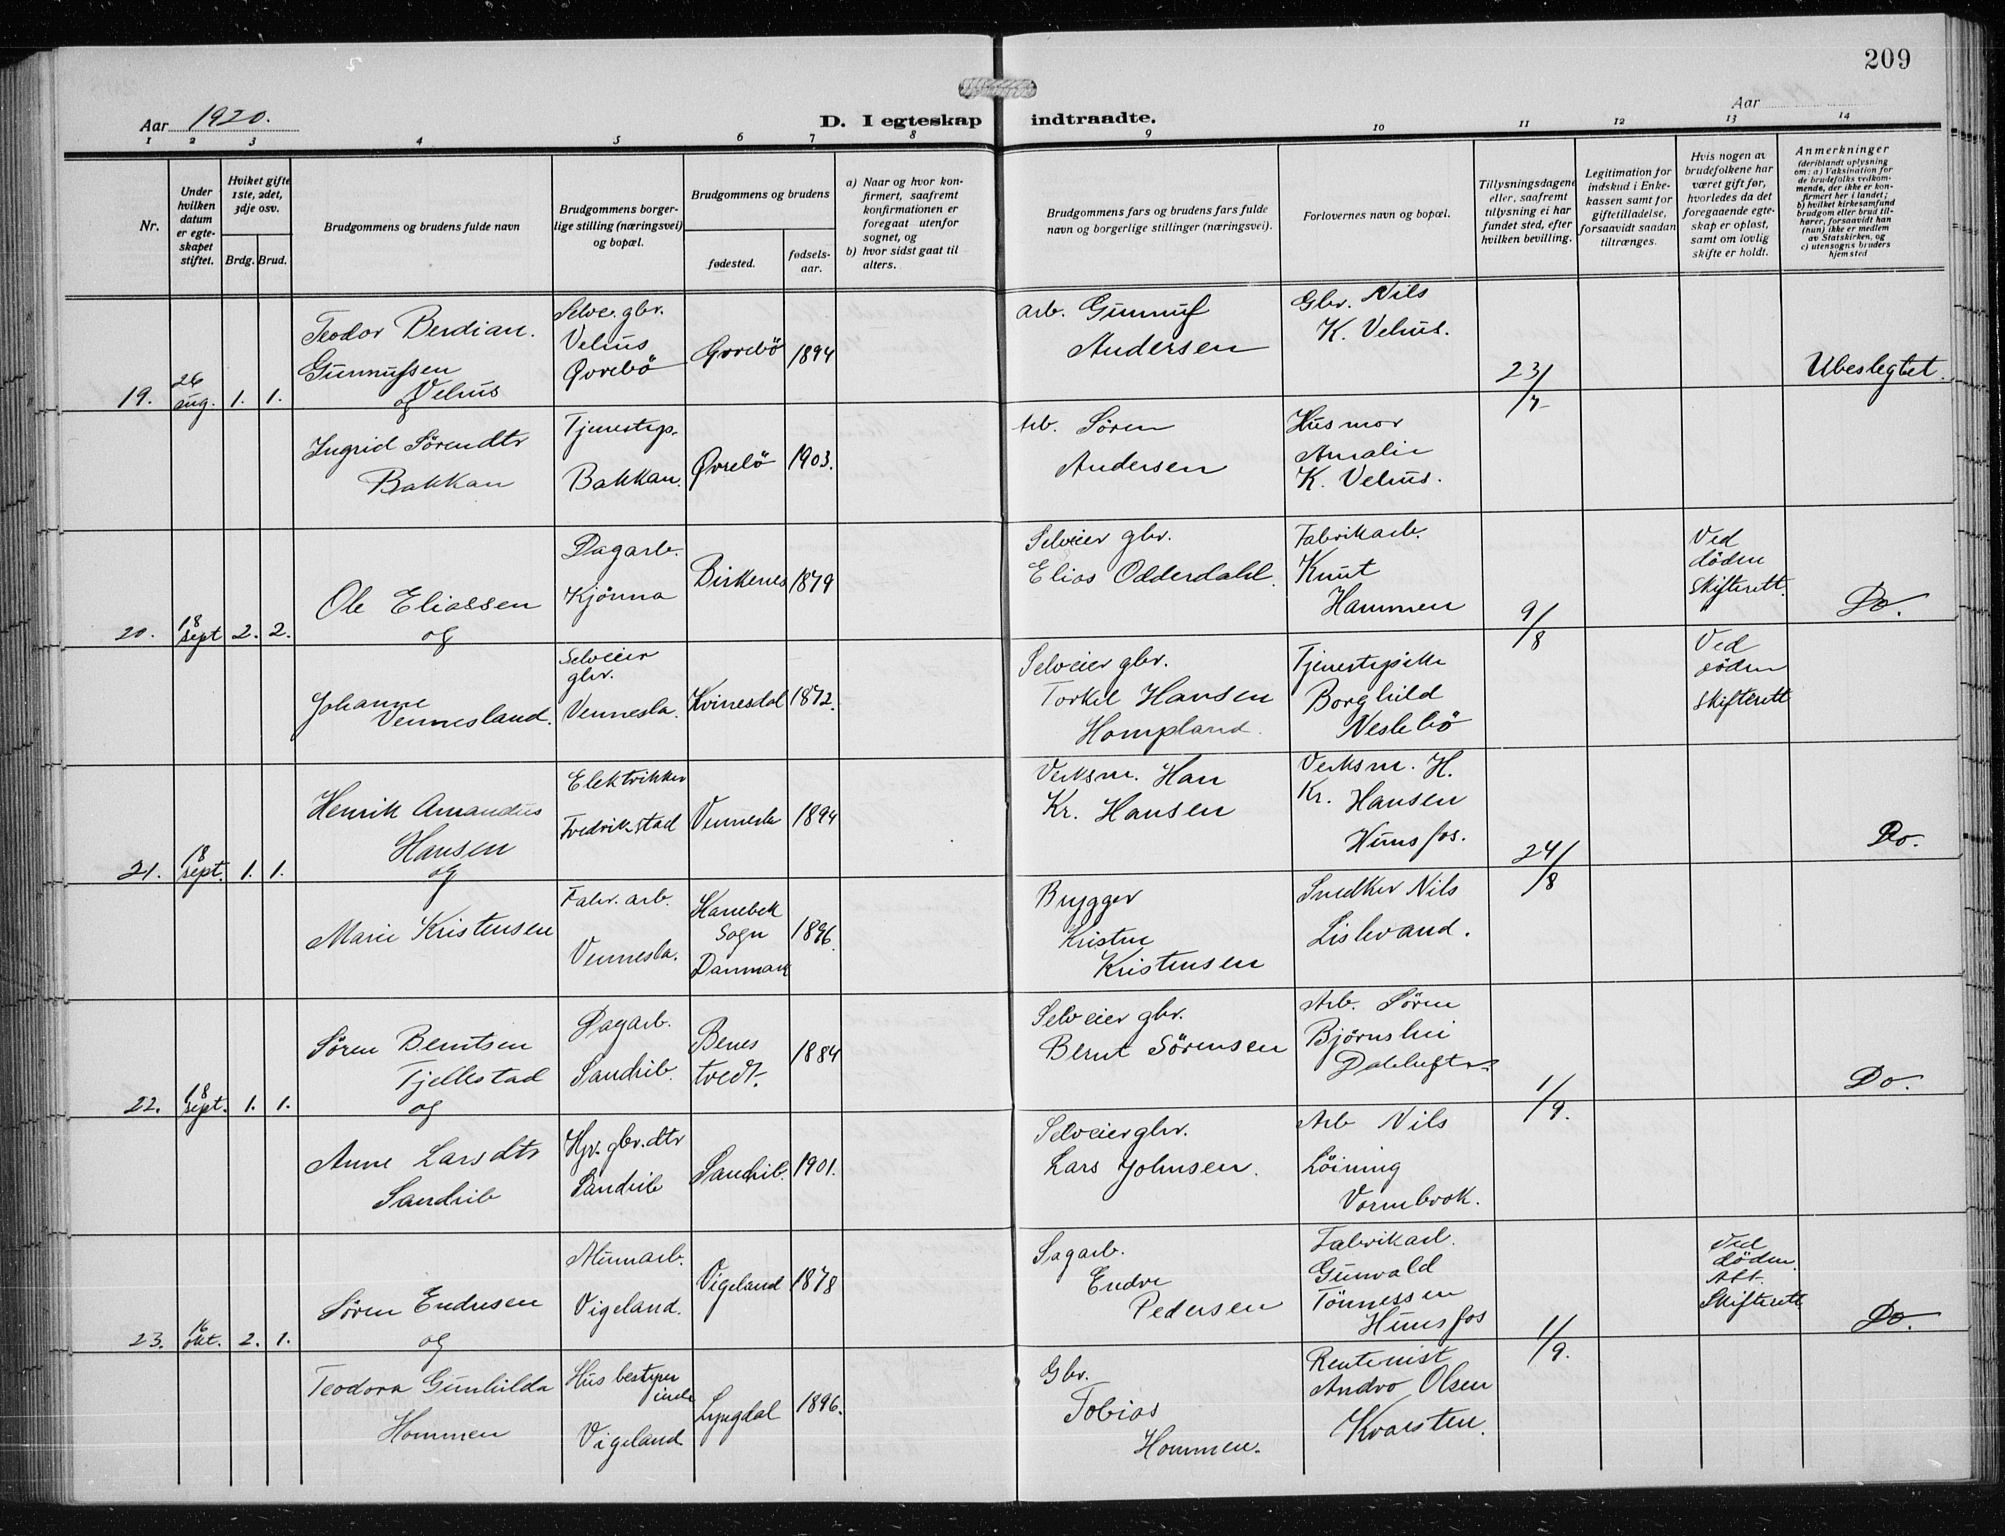 209
Aar 1920.
D. I egteskap indtraadte.
Aar
1 2 3 4 5 6 7 8 9 10 11 12 13 14
Nr.
Under hvilken datum er egteskapet stiftet.
Hviket gifte 1ste, 2det, 3dje osv.
Brdg. Brud.
Brudgommens og brudens fulde navn
Brudgommens borgerlige stilling (næringsvei) og bopæl.
Brudgommens og brudens
fødested.
fødselsaar.
a) Naar og hvor konfirmert, saafremt konfirmationen er foregaat utenfor sognet, og
b) hvor sidst gaat til alters.
Brudgommens fars og brudens fars fulde navn og borgerlige stillinger (næringsvei).
Forlovernes navn og bopæl.
Tillysningsdagene eller, saafremt tillysning ei har fundet sted, efter hvilken bevilling.
Legitimation for indskud i Enkekassen samt for giftetilladelse, forsaavidt saadan tiltrænges.
Hvis nogen av brudefolkene har været gift før, hvorledes da det foregaaende egteskap er opløst, samt om lovlig skifte er holdt.
Anmerkninger
(deriblandt oplysning om: a) Vaksination for de brudefolks vedkommende, der ikke er konfirmert her i landet;
b) hvilket kirkesamfund brudgom eller brud tilhører, forsaavidt han (hun) ikke er medlem av Statskirken, og
c) utensogns bruders hjemsted
19. 26 aug. 1. 1.
Teodor Berdian.
Gunnufsen
Vehus
og
Selvei. gbr.
Vehus
Øvrebö
Øvrebö 1894
arb. Gunnuf
Andersen
Gbr. Nils
K. Vehus.
23/7
Ubeslegtet.
Ingrid Sörendtr
Bakkan
Tjenestep.
Bakkan.
Øvrebö 1903.
Arb. Sören
Andersen
Husmor
Amalie
K. Vehus.
20. 18 sept 2. 2.
Ole Eliassen
og
Dagarb.
Kjönna
Birkenes 1879
Selveier gbr.
Elias Odderdahl.
Fabrikarb.
Knut
Hammen
9/8
Ved
döden
Skifterett.
Do.
Johanne
Vennesland.
Selveier
gbr.
Vennesla.
Kvinesdal 1872.
Selveier gbr.
Torkel Hansen
Hompland.
Tjenestepike
Borghild
Neslebö
Ved
döden
Skifterett
21. 18 sept. 1. 1.
Henrik Amandus
Hansen
og
Elektrikker
Fredrikstad
Vennesla 1894
Verksm. Han
Kr. Hansen
Verksm. H.
Kr. Hansen
Hunsfos.
24/8
Do.
Marie Kristensen
Fabr. arb.
Vennesla.
Hanebek
Sogn
Danmark
1896.
Brygger
Kristen
Kristensen
Snedker Nils
Lislevand.
22. 18 sept. 1. 1.
Sören Berntsen
Tjellestad
og
Dagarb.
Sandrib.
Benes
tvedt.
1884
Selveier gbr.
Bernt Sörensen
Arb. Sören
Bjørnslii
1/9.
Do.
Anne Larsdtr
Sandrib
Hjv. gbr.dtr
Sandrib
Sandrib. 1901.
Selveier gbr.
Lars Johnsen.
Arb Nils
Löining
Vormbrok.
23. 16 okt. 2. 1.
Sören Endresen
og
Alunarb.
Vigeland.
Vigeland 1878
Sagarb.
Endre
Pedersen
Fabrikarb.
Gunvald
Tönnessen
Hunsfos
1/9.
Ved
döden.
Att.
Skifterett
Do.
Teodora Gunhilda
Hommen
Husbestyrer
inde
Vigeland
Lyngdal 1896.
Gbr.
Tobias
Hommen.
Rentenist
Andro Olsen
Kvarsten.